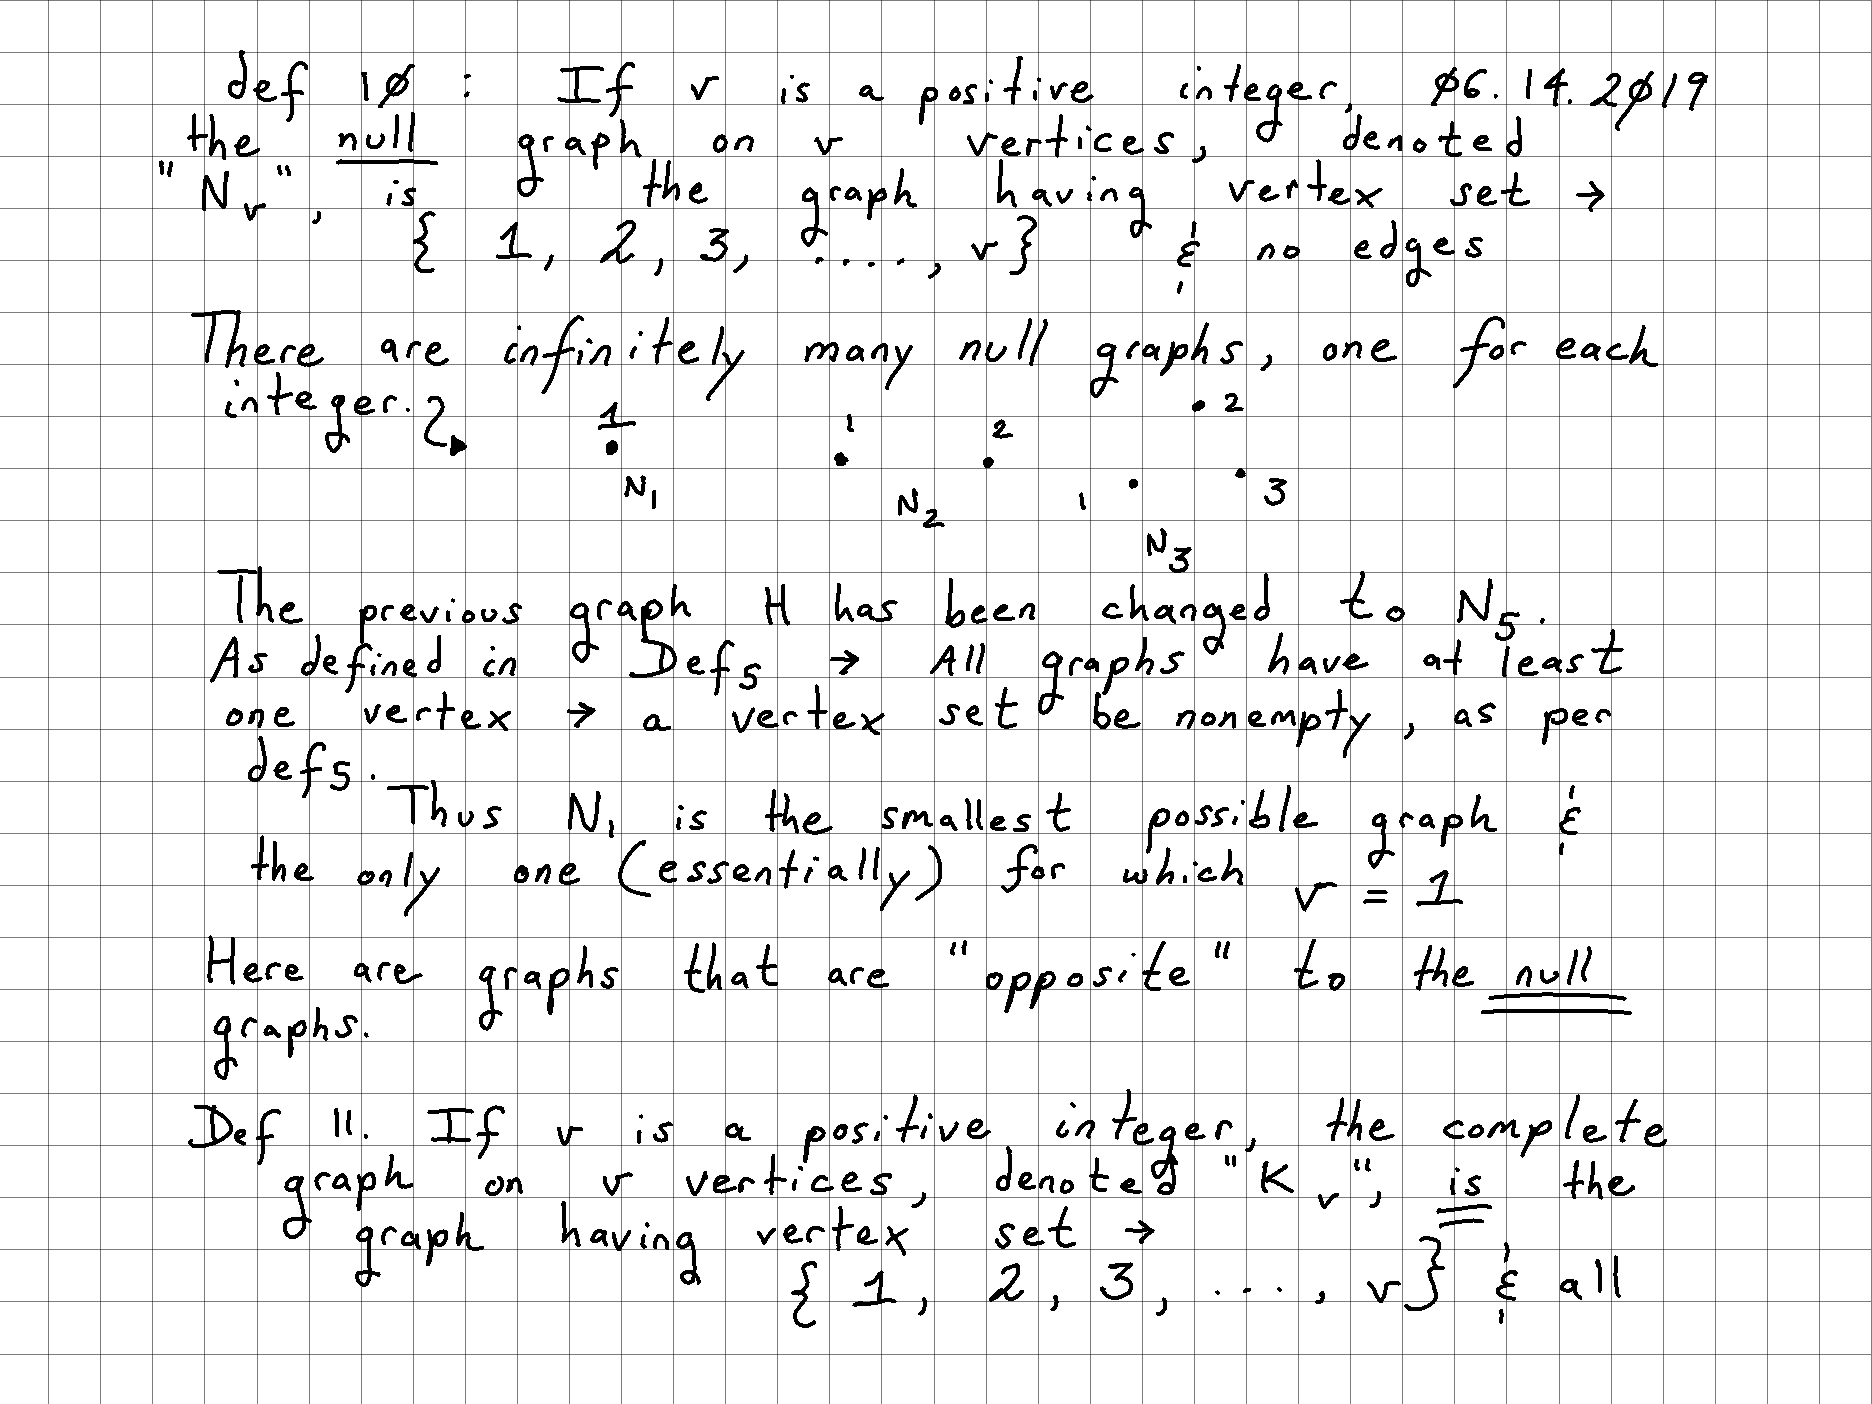 def 1∅ : If v is a positive integer, ∅6.14.2∅19
the null graph on v vertices, denoted
"Nᵥ", is the graph having vertex set →
{ 1, 2, 3, ...., v } & no edges
There are infinitely many null graphs, one for each
integer.
1 1 2 2
N₁ N₂ 1 3
N₃
The previous graph H has been changed to N₅.
As defined in Def₅ → All graphs have at least
one vertex → a vertex set be nonempty, as per
def₅.
Thus N₁ is the smallest possible graph &
the only one (essentially) for which v = 1
Here are graphs that are "opposite" to the null
graphs.
Def 11. If v is a positive integer, the complete
graph on v vertices, denoted "Kᵥ", is the
graph having vertex set →
{ 1, 2, 3, ..., v } & all